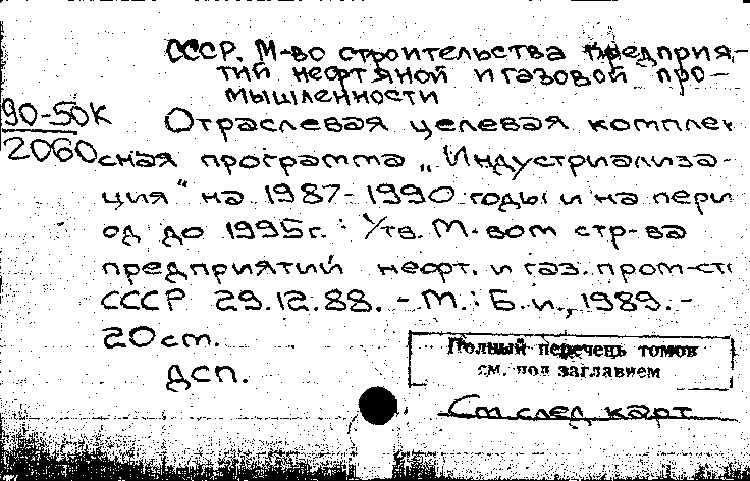 СССР. М-во строительства предприя-
тий нефтяной и газовой про-
мышленности
90-50К
2060
Отраслевая целевая комплек
сная программа „Индустриализа-
ция" на 1987-1990 годы и на пери
од до 1995г. : Утв. М-вом стр-ва
предприятий нефт. и газ. пром-сти
СССР 29.12.88. - М.: Б.и., 1989. -
20 см.
ДСП.
Полный перечень томов
см. под заглавием
См след карт